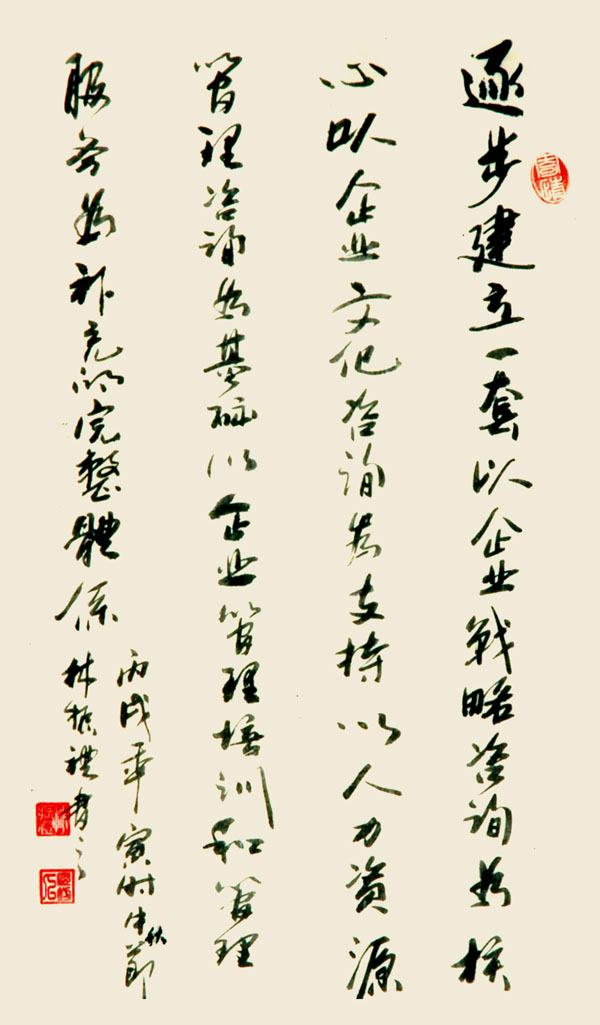 逐步建立一套以企业战略咨询为核
心以企业文化咨询为支持以人力资源
管理咨询为基础以企业管理培训和管理
服务为补充的完整體系
丙戌年寅时中秋節
林振禮書之